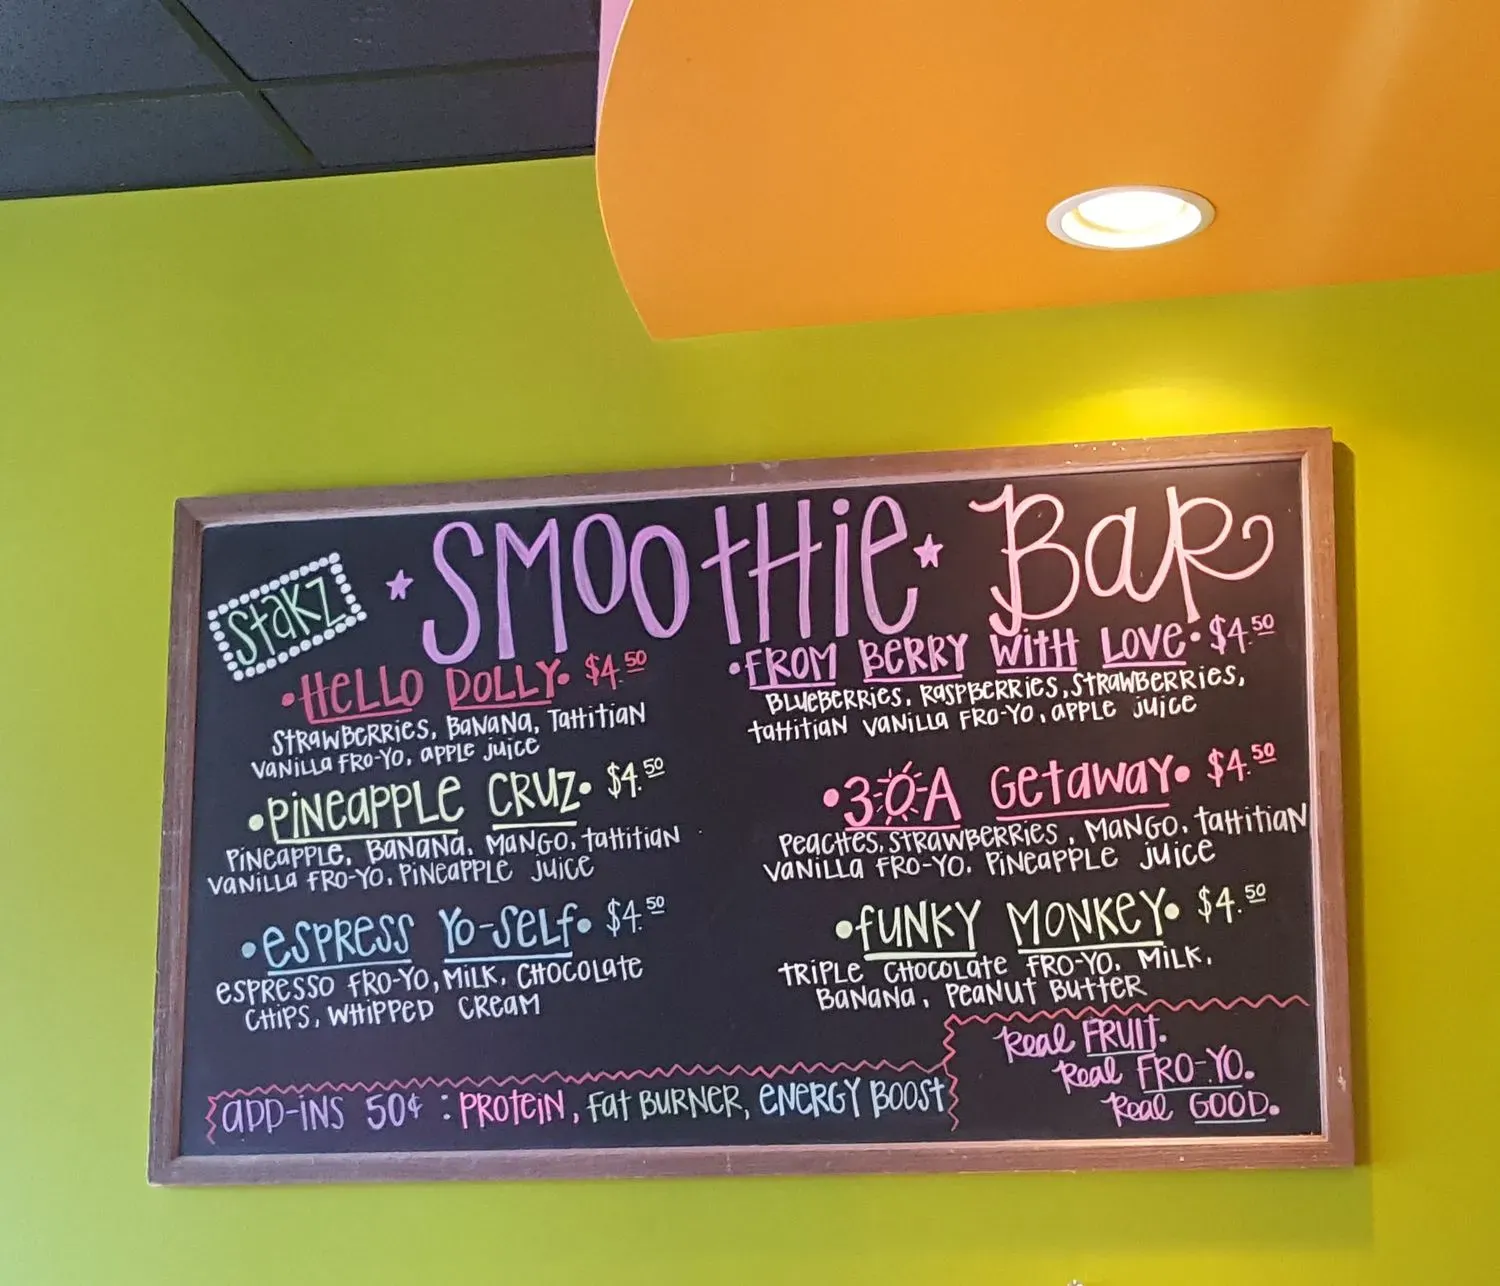 Stakz
SMOOTHIE BAR
HELLO DOLLY $4.50
STRAWBERRIES, BANANA, TAHITITIAN
VANILLA FRO-YO, APPLE JUICE
PINEAPPLE CRUZ $4.50
PINEAPPLE, BANANA, MANGO, TAHITITIAN
VANILLA FRO-YO, PINEAPPLE JUICE
ESPRESS YO-SELF $4.50
ESPRESSO FRO-YO, MILK, CHOCOLATE
CHIPS, WHIPPED CREAM
FROM BERRY WITH LOVE $4.50
BLUEBERRIES, RASPBERRIES, STRAWBERRIES,
TAHITITIAN VANILLA FRO-YO, APPLE JUICE
30A GETAWAY $4.50
PEACHES, STRAWBERRIES, MANGO, TAHITITIAN
VANILLA FRO-YO, PINEAPPLE JUICE
FUNKY MONKEY $4.50
TRIPLE CHOCOLATE FRO-YO, MILK,
BANANA, PEANUT BUTTER
ADD-INS 50¢ : PROTEIN, FAT BURNER, ENERGY BOOST
Real FRUIT.
Real FRO-YO.
Real GOOD.